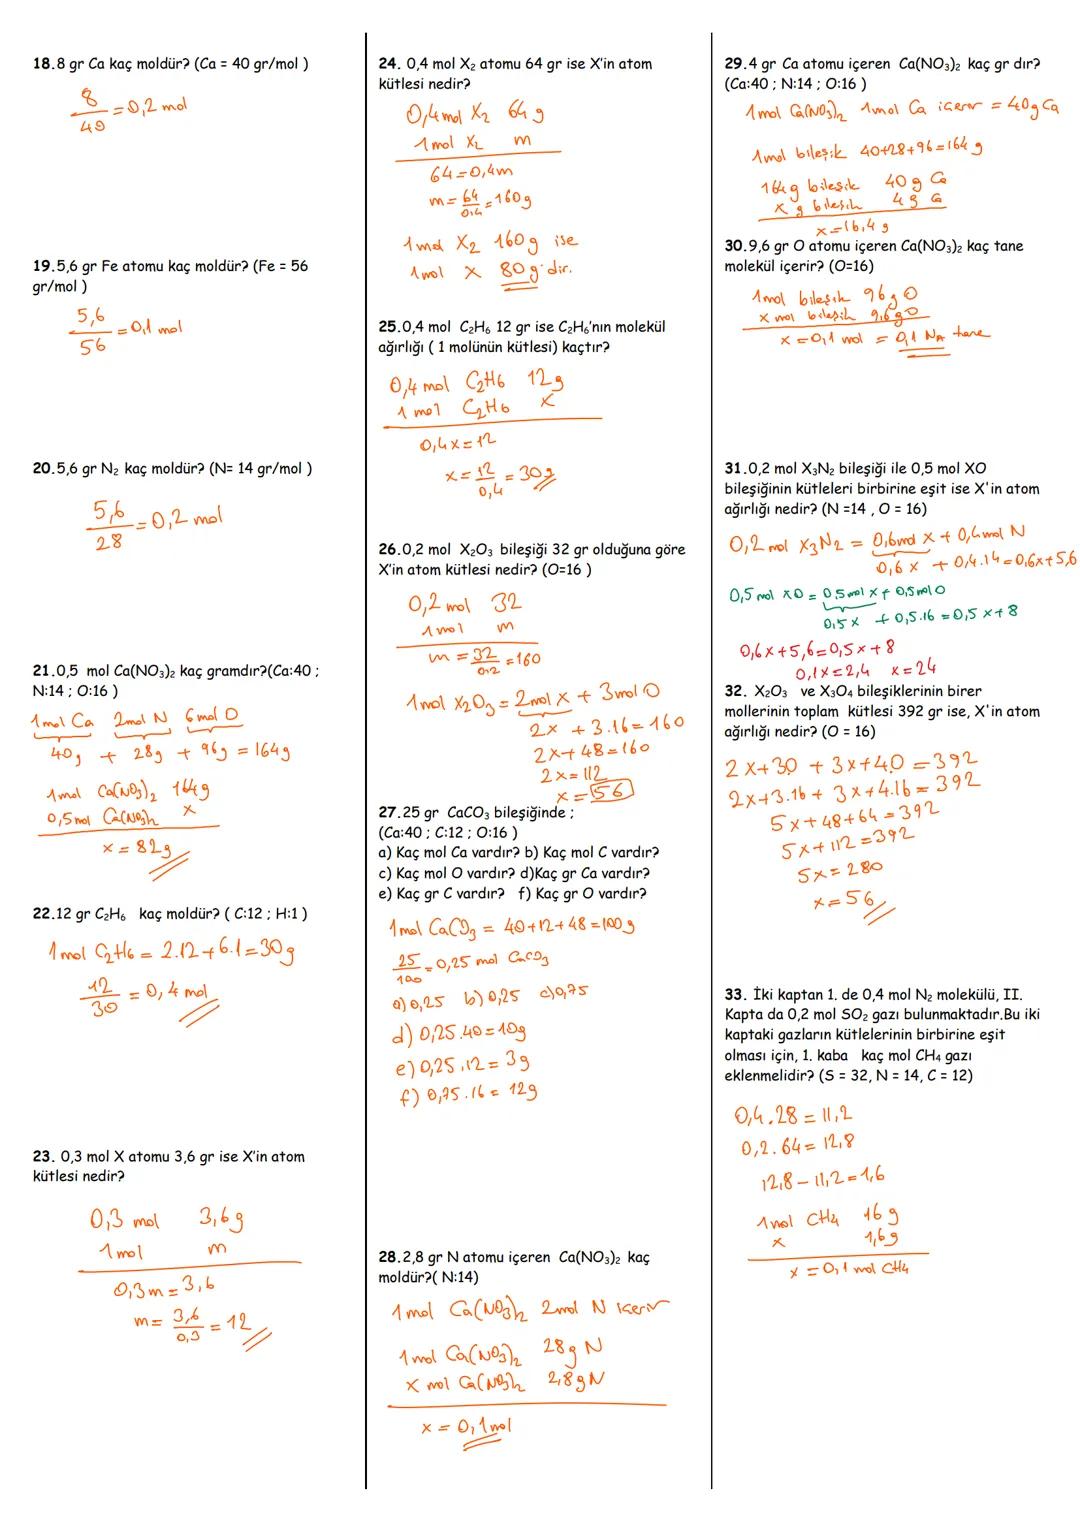 18.8 gr Ca kaç moldür? (Ca = 40 gr/mol )
8
40
=0,2 mol
19.5,6 gr Fe atomu kaç moldür? (Fe = 56
gr/mol )
5,6
56
=0,1 mol
20.5,6 gr N₂ kaç moldür? (N= 14 gr/mol )
5,6
28
=0,2 mol
21.0,5 mol Ca(NO₃)₂ kaç gramdır?(Ca:40 ;
N:14 ; O:16 )
1mol Ca 2mol N 6mol O
40g + 28g + 96g = 164g
1mol Ca(NO₃)₂ 164g
0,5mol Ca(NO₃)₂ x
x = 82g
22.12 gr C₂H₆ kaç moldür? ( C:12 ; H:1 )
1mol C₂H₆ = 2.12+6.1=30g
12
30
= 0,4 mol
23. 0,3 mol X atomu 3,6 gr ise X'in atom
kütlesi nedir?
0,3 mol 3,6g
1mol m
0,3m=3,6
m= 3,6
0,3
=12
24. 0,4 mol X₂ atomu 64 gr ise X'in atom
kütlesi nedir?
0,4mol X₂ 64g
1mol X₂ m
64=0,4m
m= 64
0,4
=160g
1mol X₂ 160g ise
1mol X 80g'dir.
25.0,4 mol C₂H₆ 12 gr ise C₂H₆'nın molekül
ağırlığı ( 1 molünün kütlesi) kaçtır?
0,4 mol C₂H₆ 12g
1 mol C₂H₆ x
0,4x=12
x= 12
0,4
=30g
26.0,2 mol X₂O₃ bileşiği 32 gr olduğuna göre
X'in atom kütlesi nedir? (O=16 )
0,2mol 32
1mol m
m = 32
0,2
=160
1mol X₂O₃ = 2mol X + 3mol O
2x +3.16=160
2x+48=160
2x=112
x=56
27.25 gr CaCO₃ bileşiğinde ;
(Ca:40 ; C:12 ; O:16 )
a) Kaç mol Ca vardır? b) Kaç mol C vardır?
c) Kaç mol O vardır? d)Kaç gr Ca vardır?
e) Kaç gr C vardır? f) Kaç gr O vardır?
1mol CaCO₃ = 40+12+48=100g
25
100
=0,25 mol CaCO₃
a)0,25 b)0,25 c)0,75
d)0,25.40=10g
e)0,25.12=3g
f)0,75.16=12g
28.2,8 gr N atomu içeren Ca(NO₃)₂ kaç
moldür?( N:14)
1mol Ca(NO₃)₂ 2mol N içerir
1mol Ca(NO₃)₂ 28g N
x mol Ca(NO₃)₂ 2,8gN
x = 0,1mol
29.4 gr Ca atomu içeren Ca(NO₃)₂ kaç gr dır?
(Ca:40 ; N:14 ; O:16 )
1mol Ca(NO₃)₂ 1mol Ca içerir = 40g Ca
1mol bileşik 40+28+96=164g
164g bileşik 40g Ca
x g bileşik 4g Ca
x=16,4g
30.9,6 gr O atomu içeren Ca(NO₃)₂ kaç tane
molekül içerir? (O=16)
1mol bileşik 96gO
x mol bileşik 9,6gO
x=0,1 mol = 0,1 NA tane
31.0,2 mol X₃N₂ bileşiği ile 0,5 mol XO
bileşiğinin kütleleri birbirine eşit ise X'in atom
ağırlığı nedir? (N =14 , O = 16)
0,2mol X₃N₂ = 0,6mol X+0,4mol N
0,6x + 0,4.14=0,6x+5,6
0,5mol XO = 0,5mol X+0,5molO
0,5x +0,5.16=0,5x+8
0,6x+5,6=0,5x+8
0,1x=2,4 x=24
32. X₂O₃ ve X₃O₄ bileşiklerinin birer
mollerinin toplam kütlesi 392 gr ise, X'in atom
ağırlığı nedir? (O = 16)
2x+3O + 3x+4O =392
2x+3.16+ 3x+4.16=392
5x+48+64=392
5x+112=392
5x=280
x=56
33. İki kaptan 1. de 0,4 mol N₂ molekülü, II.
Kapta da 0,2 mol SO₂ gazı bulunmaktadır.Bu iki
kaptaki gazların kütlelerinin birbirine eşit
olması için, 1. kaba kaç mol CH₄ gazı
eklenmelidir? (S = 32, N = 14, C = 12)
0,4.28=11,2
0,2.64=12,8
12,8-11,2=1,6
1mol CH₄ 16g
x 1,6g
x=0,1mol CH₄